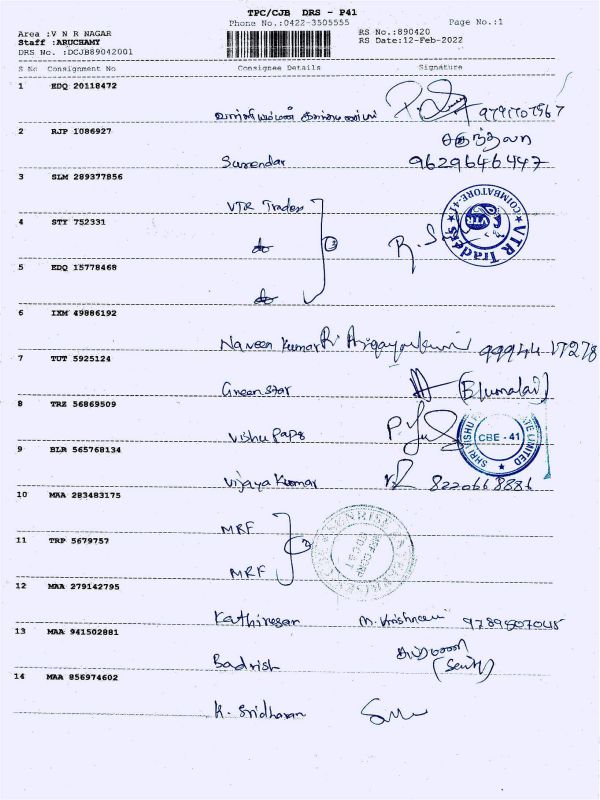 TPC/CJB DRS - P41
Phone No.:0422-3505555 Page No.:1
Area :V N R NAGAR RS No.:890420
Staff :ARUCHAMY RS Date:12-Feb-2022
DRS No. :DCJB89042001
S No Consignment No Consignee Details Signature
1 EDQ 20118472
2 RJP 1086927
சகுந்தலா
Surrendar 9629646447
3 SLM 289377856
VTR Traders
4 STY 752331
COIMBATORE-41 VTR Traders VTR
3
R. S
5 EDQ 15778468
6 IXM 49886192
Naveen Kumar
7 TUT 5925124
Greenstar
8 TRZ 56869509
Vishu Paps
SHRI VISHU LIMITED CBE - 41
9 BLR 565768134
Vijaya Kumar 8220668886
10 MAA 283483175
MRF
11 TRP 5679757
2
MRF
12 MAA 279142795
Kathiresan M. Krishnaveni 9789507045
13 MAA 941502881
Badrish
14 MAA 856974602
K. Sridharan